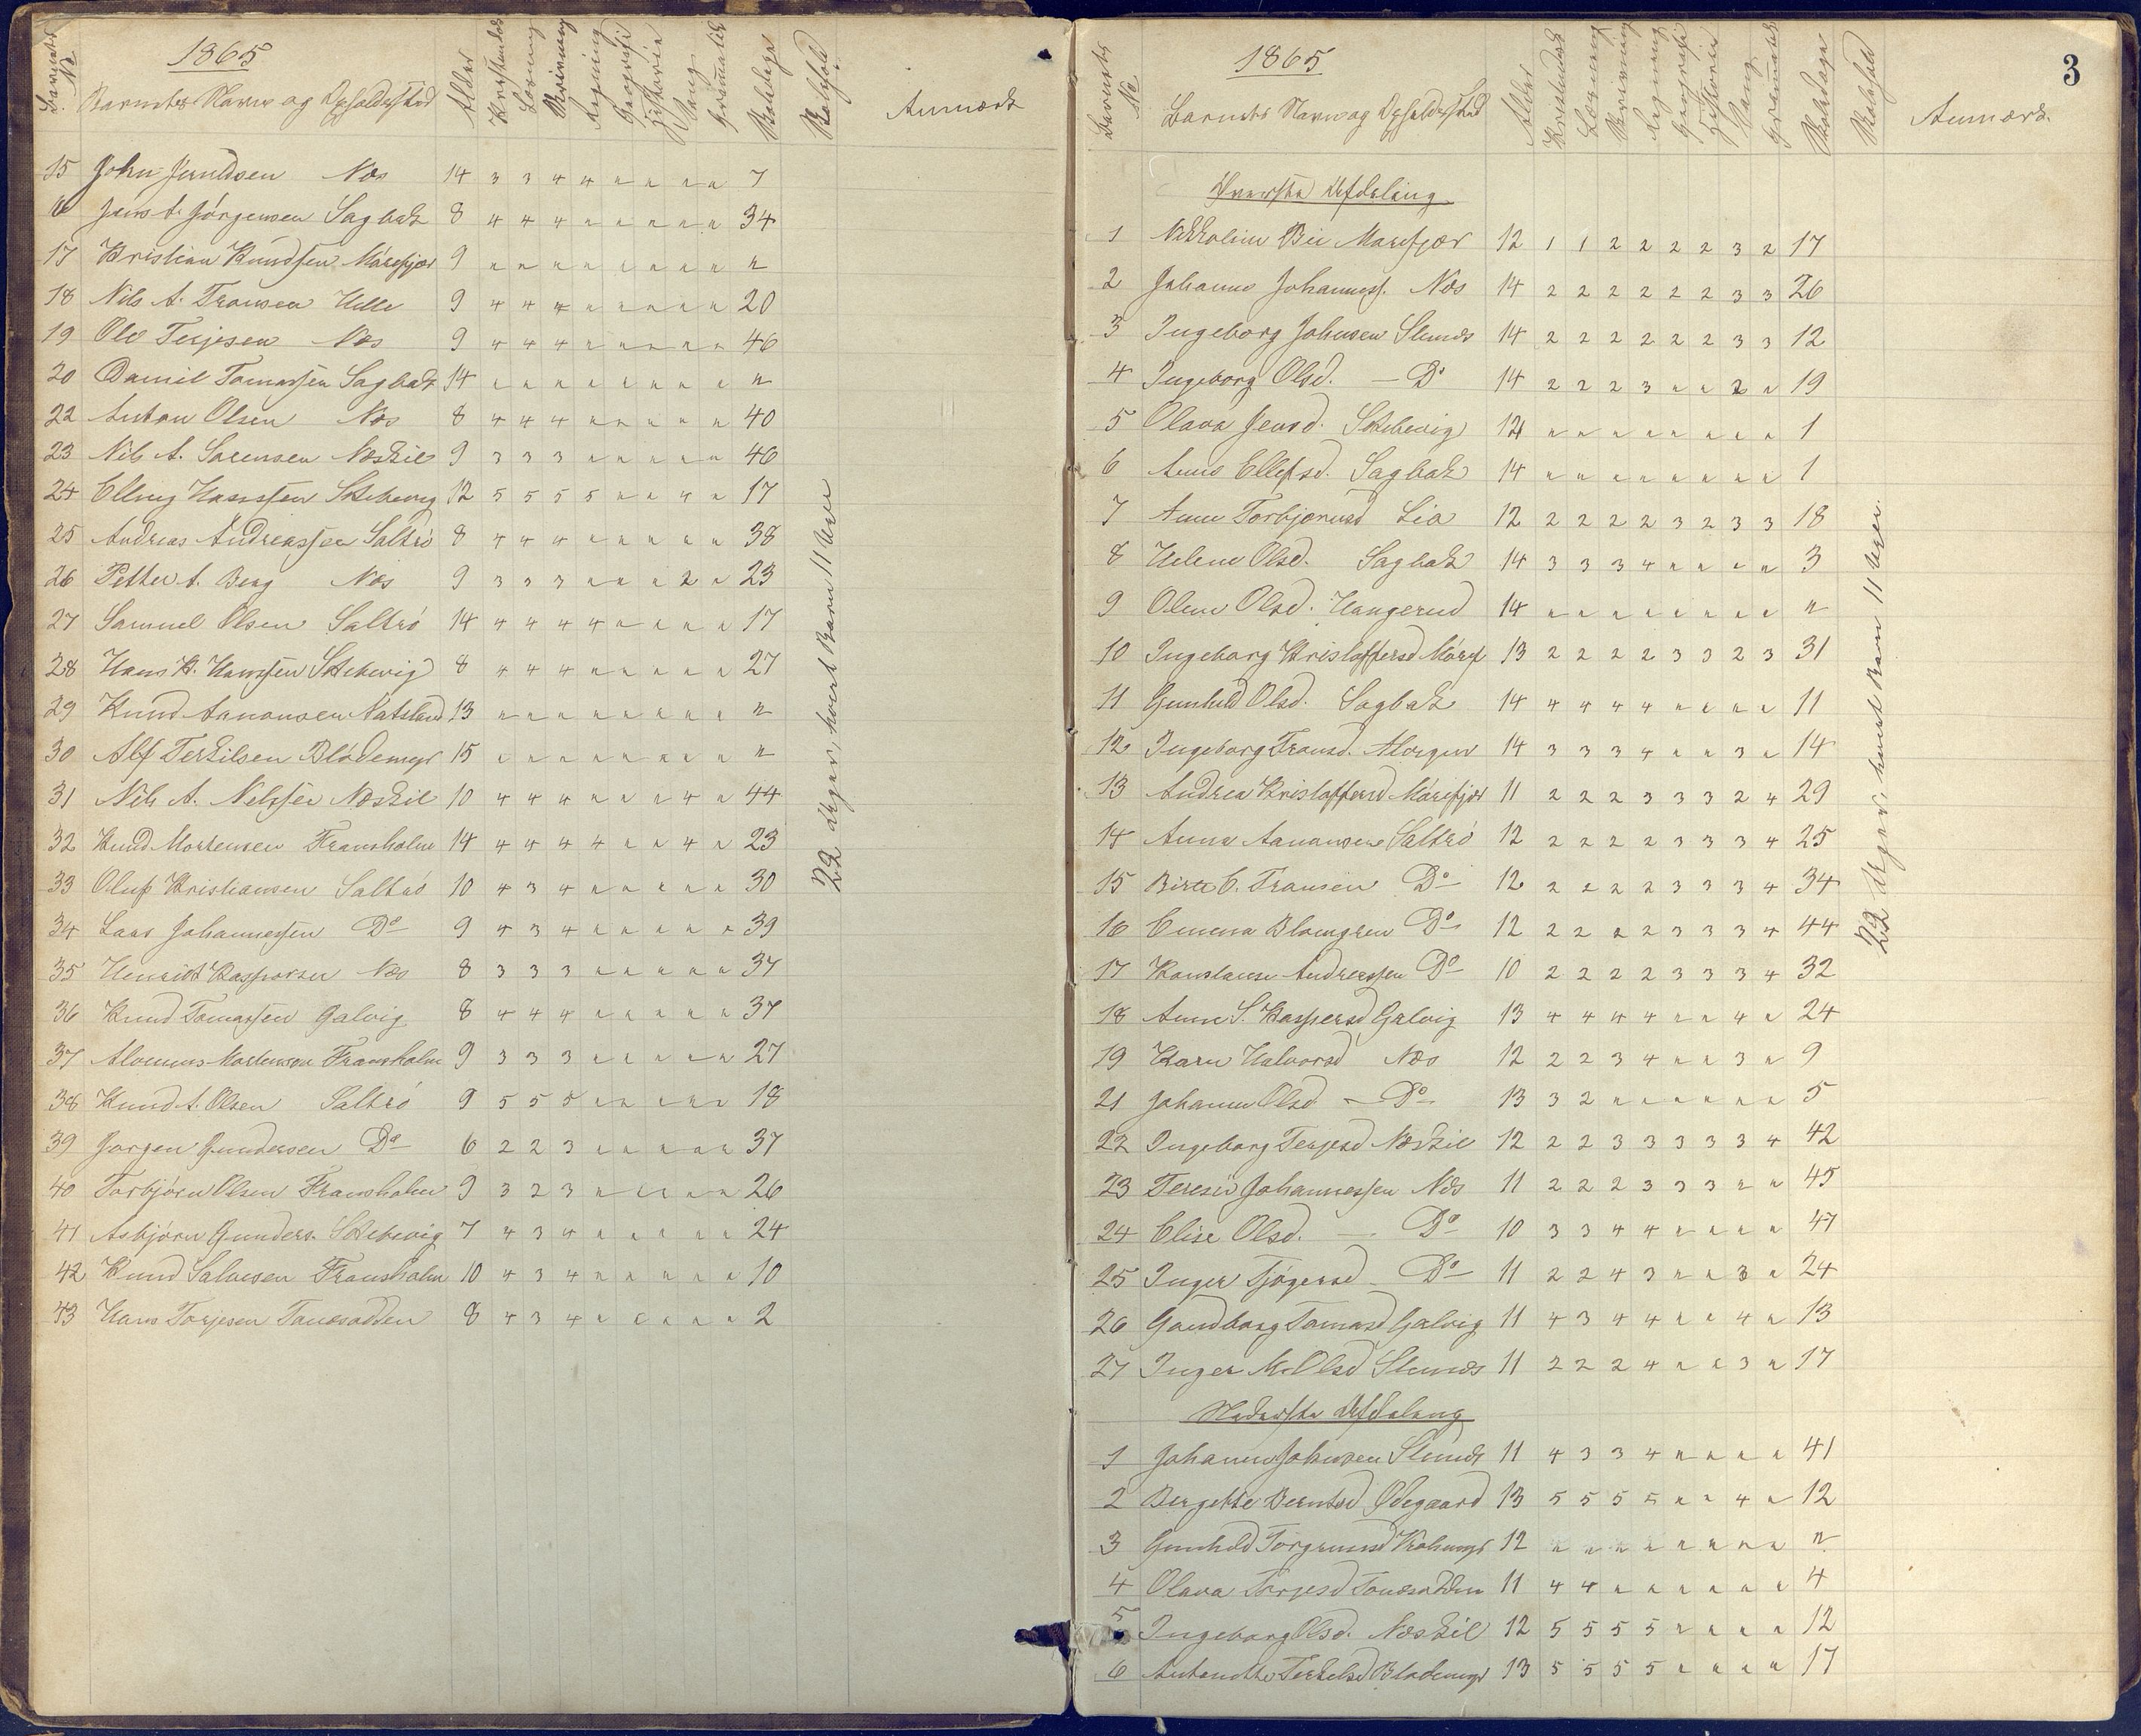 1865
Barnets No
Barnets Navn og Opholdssted
Alder
Kristendom
Læsning
Skrivning
Regning
Geografi
Historie
Sang
Grammatik
Skoledage
Skolehold
Anmærk
15 John Jensen Næs 14 3 3 4 4 " " " " 7
16 Jens A. Jørgensen Sagbak 8 4 4 4 " " " " " 34
17 Kristian Knudsen Marefjær 9 " " " " " " " " "
18 Nils A. Transen Hille 9 4 4 4 " " " " " 20
19 Ole Terjesen Næs 9 4 4 4 " " " " " 46
20 Daniel Tomassen Sagbak 14 " " " " " " " " "
22 Anton Olsen Næs 8 4 4 4 " " " " " 40
23 Nils A. Sørensen Næskil 9 3 3 3 " " " " " 46
24 Elling Hanssen Stebevig 12 5 5 5 5 " " 4 " 17
25 Andreas Andreassen Saltrö 8 4 4 4 " " " " " 38
26 Petter A. Berg Næs 9 3 3 3 " " " 2 " 23
27 Samuel Olsen Saltrö 14 4 4 4 4 " " " " 17
28 Hans K. Hanssen Stebevig 8 4 4 4 " " " " " 27
29 Knud Aanonsen Natsland 13 " " " " " " " " "
30 Alf Terkilsen Blödemyr 15 " " " " " " " " "
31 Nils A. Nelssen Næskil 10 4 4 4 " " " 4 " 44
32 Knud Mortensen Fransholm 14 4 4 4 4 " " 4 " 23
33 Oluf Kristiansen Saltrö 10 4 3 4 " " " " " 30
34 Lars Johannessen Do 9 4 3 4 " " " " " 39
35 Henrik Kaspersen Næs 8 3 3 3 " " " " " 37
36 Knud Tomassen Galvig 8 4 4 4 " " " " " 37
37 Mortensen Fransholm 9 3 3 3 " " " " " 27
38 Knud A. Olsen Saltrö 9 5 5 5 " " " " " 18
39 Jørgen Gundersen Do 6 2 2 3 " " " " " 37
40 Torbjörn Olsen Fransholm 9 3 2 3 " " " " " 26
41 Asbjörn Gunders. Stebevig 7 4 3 4 " " " " " 24
42 Knud Salvesen Fransholm 10 4 3 4 " " " " " 10
43 Hans Torjesen Tangodden 8 4 3 4 " " " " " 2
22 Uger, hvert Barn 11 Uger
3
1865
Barnets No
Barnets Navn og Opholdssted
Alder
Kristendom
Læsning
Skrivning
Regning
Geografi
Historie
Sang
Grammatik
Skoledage
Skolehold
Anmærk.
Øverste Afdeling
1 Marefjær 12 1 1 2 2 2 2 3 2 17
2 Johanne Johanness. Næs 14 2 2 2 2 2 2 3 3 26
3 Ingeborg Johnsen Slunds 14 2 2 2 2 2 2 3 3 12
4 Ingeborg Olsd. — Do 14 2 2 2 3 " " 2 " 19
5 Olava Jensd. Stebevig 14 " " " " " " " " 1
6 Anne Ellefsd. Sagbak 14 " " " " " " " " 1
7 Anne Torbjørnsd Lia 12 2 2 2 2 3 2 3 3 18
8 Helene Olsd. Sagbak 14 3 3 3 4 " " " " 3
9 Oline Olsd. Hangerud 14 " " " " " " " " "
10 Ingeborg Kristoffersd Maref 13 2 2 2 2 3 3 2 3 31
11 Gunhild Olsd. Sagbak 14 4 4 4 4 " " " " 11
12 Ingeborg Transd. 14 3 3 3 4 " " 3 " 14
13 Andrea Kristoffersd Marefjær 11 2 2 2 3 3 3 2 4 29
14 Anna Aanonsen Saltrö 12 2 2 2 2 3 3 3 4 25
15 Birte C. Transen Do 12 2 2 2 2 3 3 3 4 34
16 Emma Blomgren Do 12 2 2 2 2 3 3 3 4 44
17 Konstanse Andreassen Do 10 2 2 2 2 3 3 3 4 32
18 Anne S. Kaspersd Galvig 13 4 4 4 4 " " 4 " 24
19 Karn Halvorsd Næs 12 2 2 3 4 " " 3 " 9
21 Johanne Olsd — Do 13 3 2 " " " " " " 5
22 Ingeborg Terjesd Næskil 12 2 2 3 3 3 3 3 4 42
23 Terese Johannessen Næs 11 2 2 2 3 3 3 " " 45
24 Elise Olsd. — Do 10 3 3 4 4 " " " " 47
25 Inger Tjögersd — Do 11 2 2 4 3 " " 3 " 24
26 Gundborg Tomasd Galvig 11 4 3 4 4 " " 4 " 13
27 Inger M. Olsd Slunds 11 2 2 2 4 " " 3 " 17
Nederste Afdeling
1 Johanne Johnsen Slunds 11 4 3 3 4 " " " " 41
2 Bergette Berntsd Ødegaard 13 5 5 5 5 " " 4 " 12
3 Gunhild Torgrimsd 12 " " " " " " " " "
4 Olava Torjesd Tangodden 11 4 4 " " " " " " 4
5 Ingeborg Olsd. Næskil 12 5 5 5 5 " " " " 12
6 Antonette Terkelsd Blødemyr 13 5 5 5 5 " " " " 17
22 Uger, hvert Barn 11 Uger